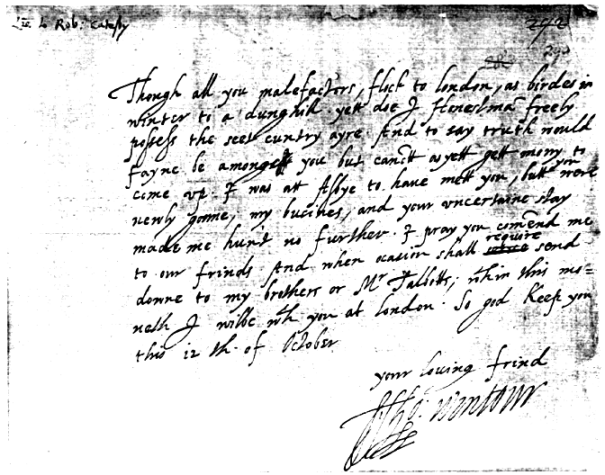 Lre to Rob: Catesby
292
Though all you malefactors, flock to london, as birdes in
winter to a dunghill yett doe I Honest man freely
possess the seet cuntry ayre And to say truth would
fayne be amongest you but cannt as yett gett mony to
come vp. I was att Asbye to have mett you, butt you were
newly gonne, my busines, and your uncertaine stay
made me hunt no further. I pray you comend me
to our frinds And when ocasion shall require send
downe to my brothers or Mr Talbotts; whin this mo=
neth I wilbe with you at london. So god Keep you
this 12 th. of October
your loving frind
Tho: wintour